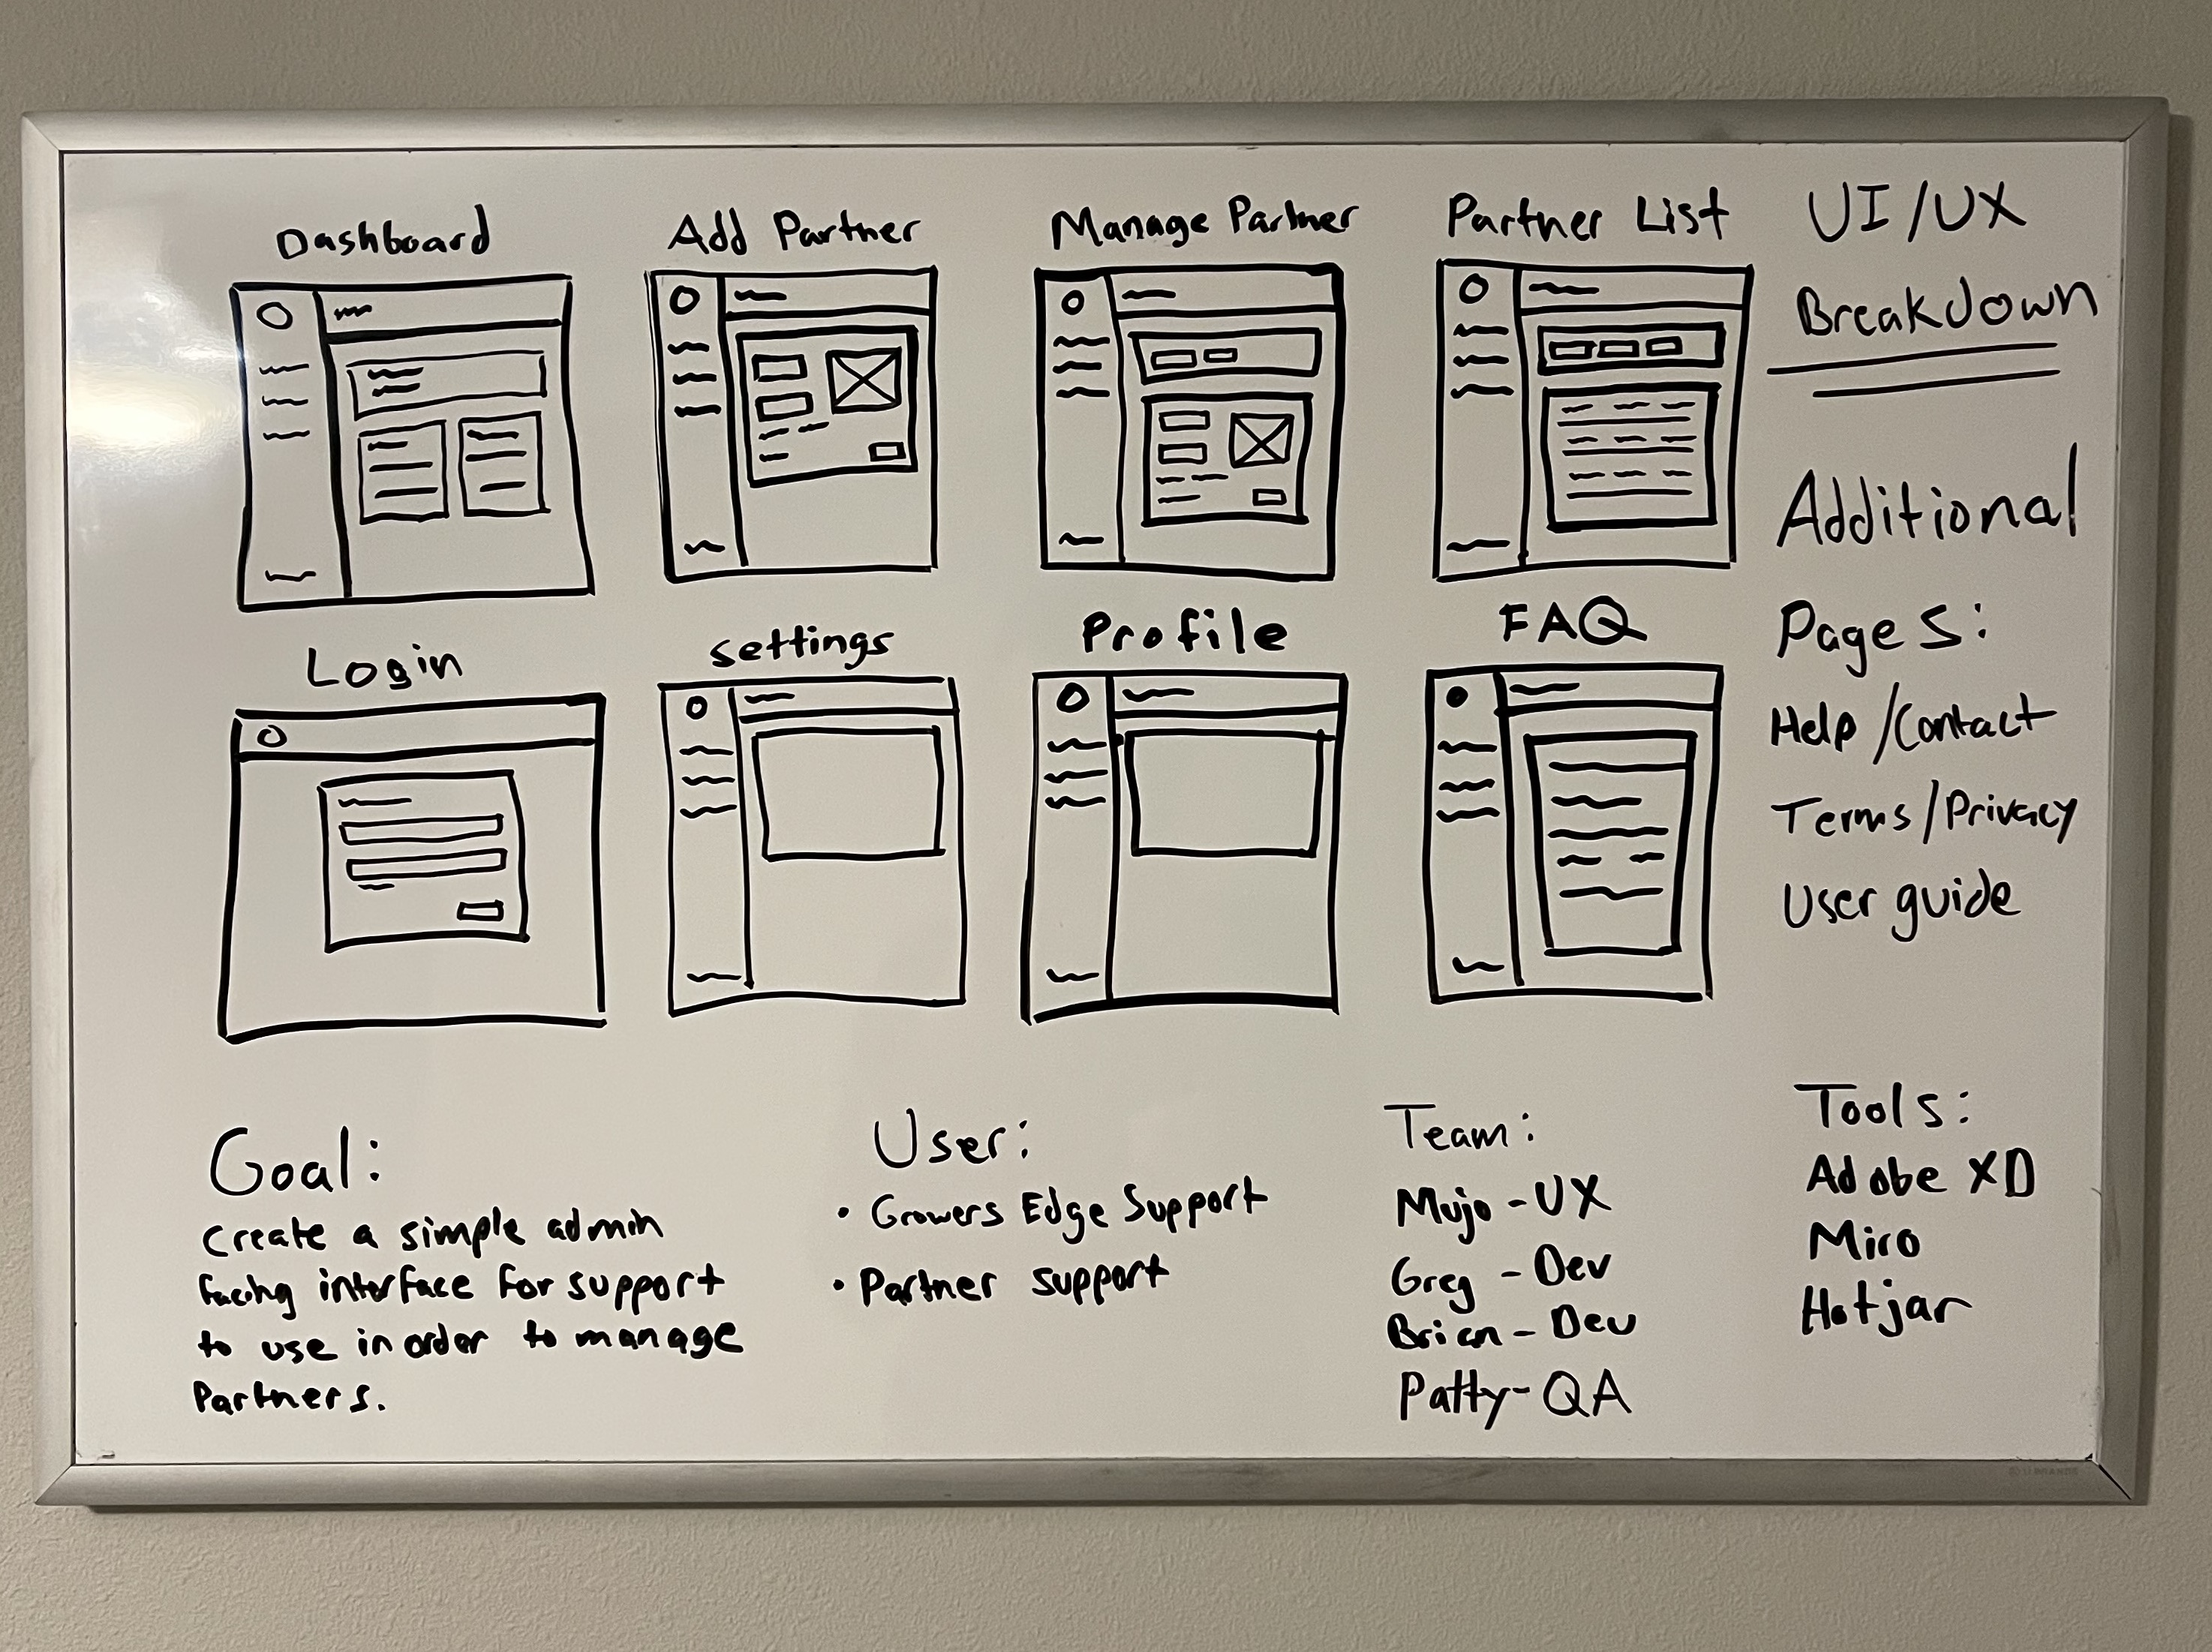 Dashboard
Add Partner
Manage Partner
Partner List
UI/UX
Breakdown
Login
settings
Profile
FAQ
Additional
Pages:
Help/Contact
Terms/Privacy
User guide
Goal:
Create a simple admin
facing interface for support
to use in order to manage
Partners.
User:
• Growers Edge Support
• Partner support
Team:
Mujo - UX
Greg - Dev
Brian - Dev
Patty - QA
Tools:
Adobe XD
Miro
Hotjar